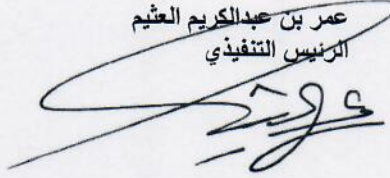 عمر بن عبدالكريم العثيم
الرئيس التنفيذي